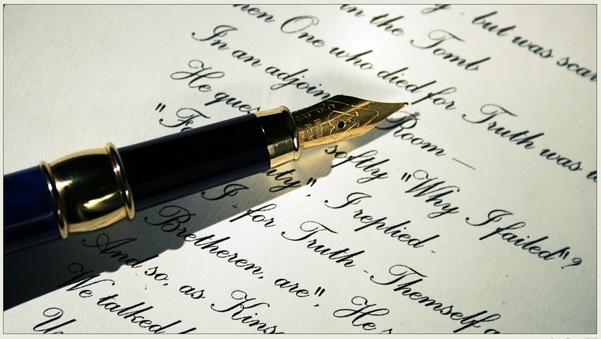 but was scar
When One who died for Truth was
in the Tomb
In an adjoin Room —
He ques softly "Why I failed"?
"Fo ity", I replied -
I - for Truth - Themself a
Bretheren, are", He s
And so, as Kins
We talked